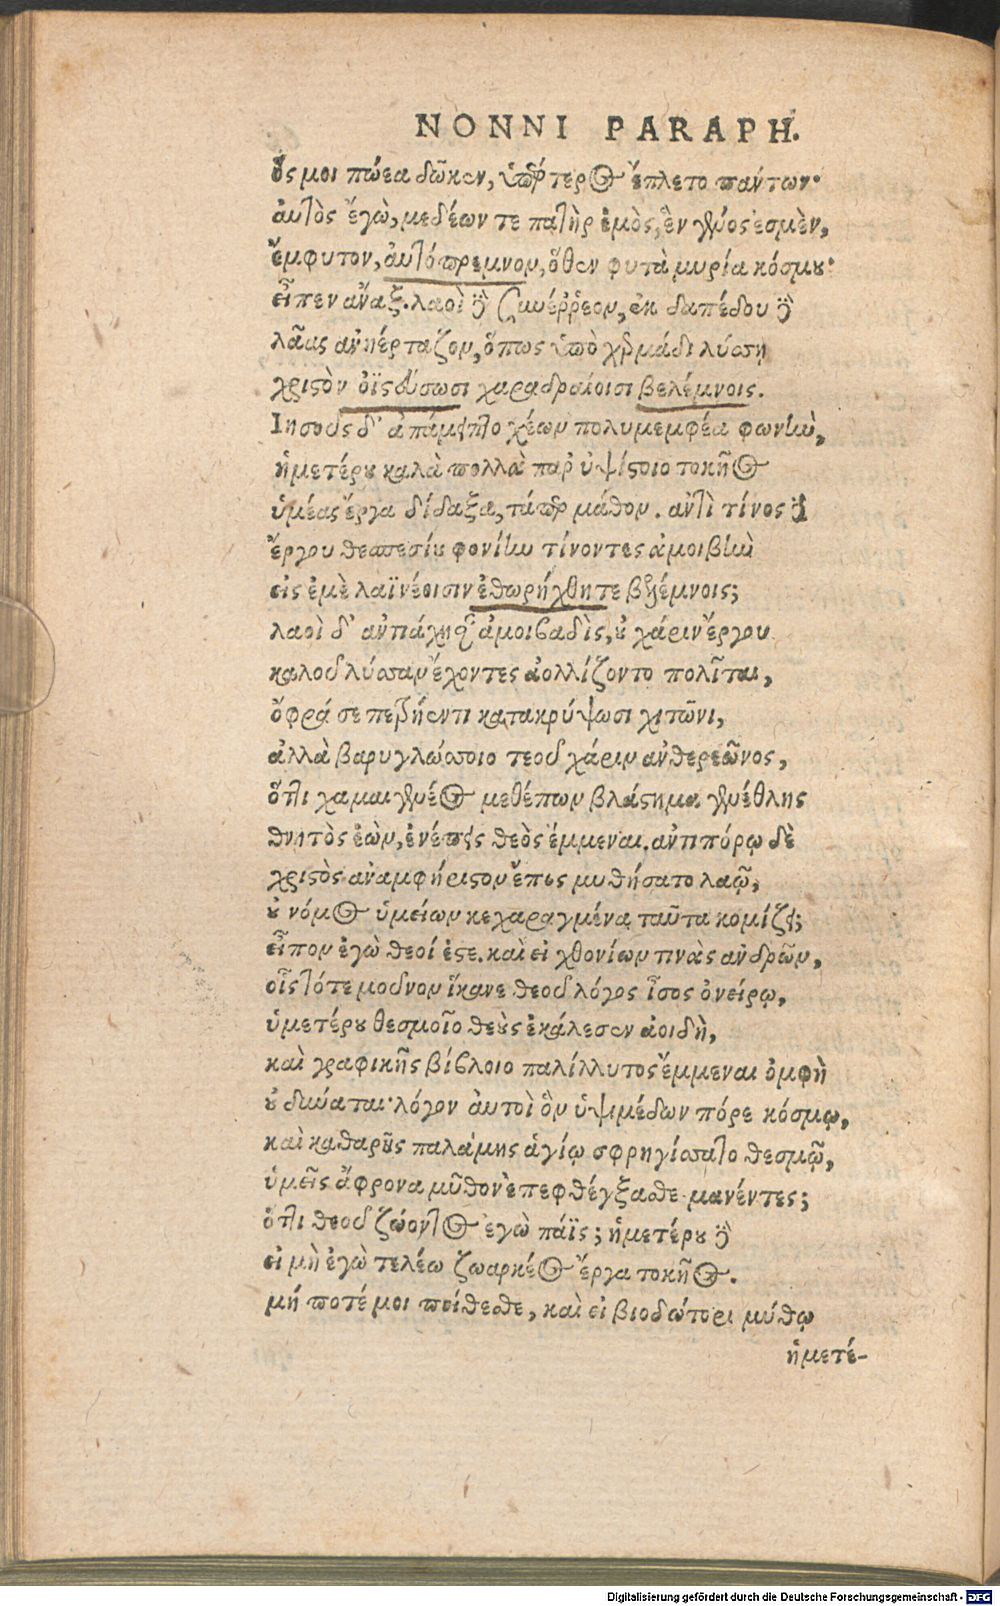 NONNI PARAPH.
ὅς μοι πώεα δῶκεν, ὑπέρτερος ἔπλετο πάντων·
ἀυτὸς ἐγὼ, μεδέων τε πατὴρ ἐμὸς, ἓν γένος ἐσμὲν,
ἔμφυτον, ἀυτόπρεμνον, ὅθεν φυτὰ μυρία κόσμου·
εἶπεν ἄναξ. λαοὶ δὲ συνέῤῥεον, ἐκ δαπέδου δὲ
λᾶας ἀνηέρταζον, ὅπως ὑπὸ χερμάδι λύσση
χριστὸν ὀϊστεύσωσι χαραδραίοισι βελέμνοις.
Ιησοῦς δ' ἀπάμειπτο χέων πολυμεμφέα φωνὴν,
ἡμετέρου καλὰ πολλὰ παρ' ὑψίστοιο τοκῆος
ὑμέας ἔργα δίδαξα, τάπερ μάθον. ἀντὶ τίνος δὲ
ἔργου θεσπεσίου φονίην τίνοντες ἀμοιβὴν
εἰς ἐμὲ λαϊνέοισιν ἐθωρήχθητε βελέμνοις;
λαοὶ δ' ἀντιάχησαν ἀμοιβαδὶς, οὐ χάριν ἔργου
καλοῦ λύσσαν ἔχοντες ἀολλίζοντο πολῖται,
ὄφρά σε πετρήεντι κατακρύψωσι χιτῶνι,
ἀλλὰ βαρυγλώσσοιο τεοῦ χάριν ἀνθερεῶνος,
ὅττι χαμαιγενέος μεθέπων βλάστημα γενέθλης
θνητὸς ἐὼν, ἐνέπεις θεὸς ἔμμεναι. ἀντιπόρῳ δὲ
χριστὸς ἀναμφήριστον ἔπος μυθήσατο λαῷ,
οὐ νόμος ὑμείων κεχαραγμένα ταῦτα κομίζει;
εἶπον ἐγὼ θεοί ἐστε. καὶ εἰ χθονίων τινὰς ἀνδρῶν,
οἷς τότε μοῦνον ἵκανε θεοῦ λόγος ἶσος ὀνείρῳ,
ὑμετέρου θεσμοῖο θεοὺς ἐκάλεσεν ἀοιδὴ,
καὶ γραφικῆς βίβλοιο παλίλλυτος ἔμμεναι ὀμφὴ
οὐ δύναται· λόγον ἀυτοὶ ὃν ὑψιμέδων πόρε κόσμῳ,
καὶ καθαρῆς παλάμης ἁγίῳ σφρηγίσσατο θεσμῷ,
ὑμεῖς ἄφρονα μῦθον ἐπεφθέγξασθε μανέντες;
ὅττι θεοῦ ζώοντος ἐγὼ πάϊς; ἡμετέρου δὲ
εἰ μὴ ἐγὼ τελέω ζωαρκέος ἔργα τοκῆος.
μή ποτέ μοι πείθεσθε, καὶ εἰ βιοδώτορι μύθῳ
ἡμετέ-
Digitalisierung gefördert durch die Deutsche Forschungsgemeinschaft - DFG